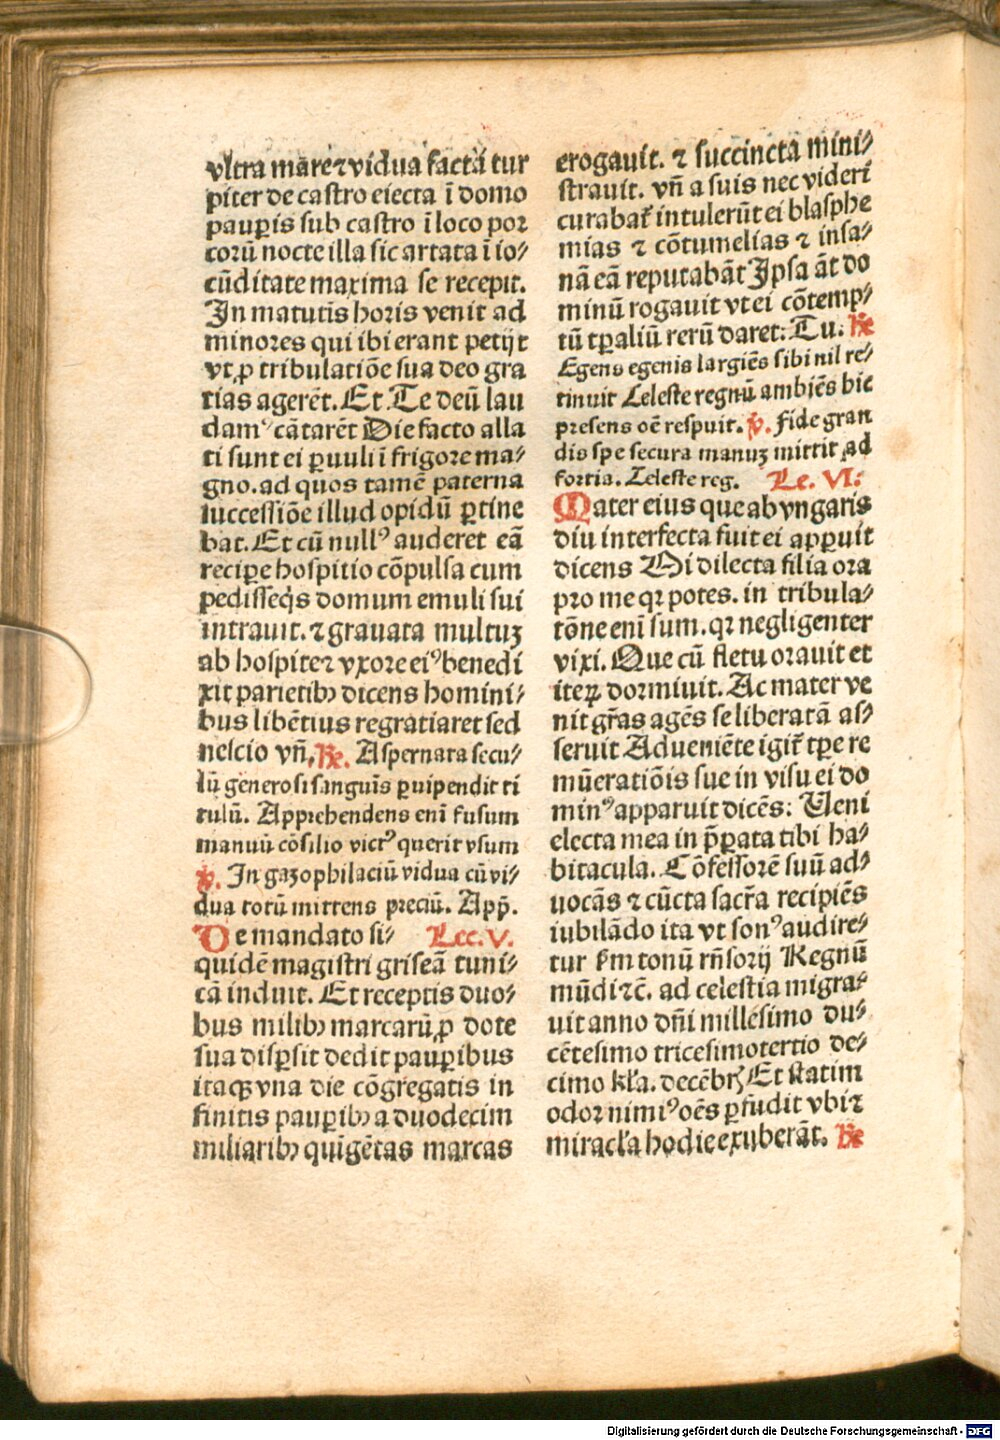 vltra mare ⁊ vidua factā tur
piter de castro eiecta ī domo
pauꝑis sub castro ī loco por
corū nocte illa sic artata ī io⸗
cūditate maxima se recepit.
In matutīs horis venit ad
minores qui ibi erant petijt
vt ꝓ tribulatiōe sua deo gra
tias agerēt. Et Te deū lau
damꝰ cātarēt Die facto alla
ti sunt ei ꝑuuli ī frigore ma⸗
gno. ad quos tamē paterna
successiōe illud opidū ꝑtine
bat. Et cū nullꝰ auderet eā
reciꝑe hospitio cōpulsa cum
pedisseq̄s domum emuli sui
intrauit. ⁊ grauata multuʒ
ab hospite ⁊ vxore eiꝰ benedi
xit parietibꝫ dicens homini⸗
bus libētius regratiaret sed
nescio vñ, ℟. Aspernata secu⸗
lū generosi sanguīs ꝑuipendit ti
tulū. Apprehendens enī fusum
manuū cōsilio victꝰ querit vsum
℣. In gazophilaciū vidua cū vi⸗
dua totū mittens preciū. App̄.
De mandato si⸗ Lec. V.
quidē magistri griseā tuni⸗
cā induit. Et receptis duo⸗
bus milibꝫ marcarū, ꝓ dote
sua disꝑsit dedit pauꝑibus
itaqꝫ vna die cōgregatis in
finitis pauꝑibꝫ a duodecim
miliaribꝫ quīgētas marcas
erogauit. ⁊ succincta mini⸗
strauit. vñ a suis nec videri
curabat᷑ intulerūt ei blasphe
mias ⁊ cōtumelias ⁊ insa⸗
nā eā reputabāt Ipsa āt do
minū rogauit vt ei cōtemp⸗
tū tꝑaliū rerū daret: Tu. ℟
Egens egenis largiēs sibi nil re⸗
tinuit Celeste regnū ambiēs hic
presens oē respuit. ℣. Fide gran
dis spe secura manuʒ mittit ad
fortia. Celeste reg. Le. VI:
Mater eius que ab vngaris
diu interfecta fuit ei apꝑuit
dicens Mi dilecta filia ora
pro me qꝛ potes. in tribula⸗
tōne enī sum. qꝛ negligenter
vixi. Que cū fletu orauit et
iteꝝ dormiuit. Ac mater ve
nit gr̄as agēs se liberatā as⸗
seruit Adueniēte igit᷑ tꝑe re
mūeratiōis sue in visu ei do
minꝰ apparuit dicēs: Veni
electa mea in p̄ꝑata tibi ha⸗
bitacula. Cōfessorē suū ad⸗
uocās ⁊ cūcta sacr̄a recipiēs
iubilādo ita vt sonꝰ audire⸗
tur ẜm tonū rñsorij Regnū
mūdi ⁊c̄. ad celestia migra⸗
uit anno dñi millesimo du⸗
cētesimo tricesimotertio de⸗
cimo kl̄a. decēbrꝭ Et statim
odor nimiꝰ oēs ꝑfudit vbi ⁊
miracl̄a hodie exuberāt. ℟
Digitalisierung gefördert durch die Deutsche Forschungsgemeinschaft - DFG